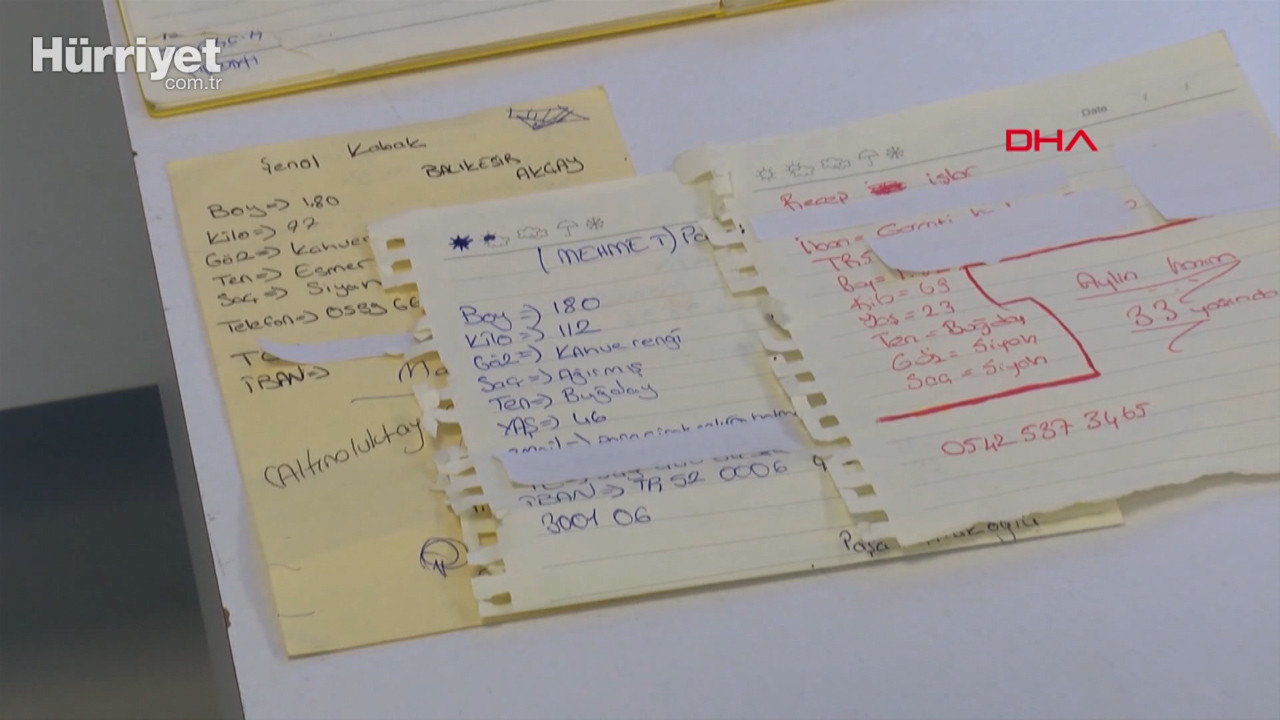 Hürriyet
com.tr
DHA
Şenol Kabak
BALIKESİR
AKÇAY
Boy=> 1.80
Kilo=> 92
Göz=> Kahver
Ten=> Esmer
Saç=> Siyah
Telefon=> 0539 66
İBAN=>
(Altınoluktay
(MEHMET) Pa
Boy=> 180
Kilo=> 112
Göz=> Kahverengi
Saç=> Ağırmış
Ten=> Buğday
YAŞ=> 46
İBAN=> TR 52 0006 9
3001 06
Date / /
Recep işler
iban=
Boy=
Kilo = 63
Yaş = 23
Ten = Buğday
Göz = Siyah
Saç = Siyah
Aylin hanım
33 yaşında
0542 537 3465
Paşa